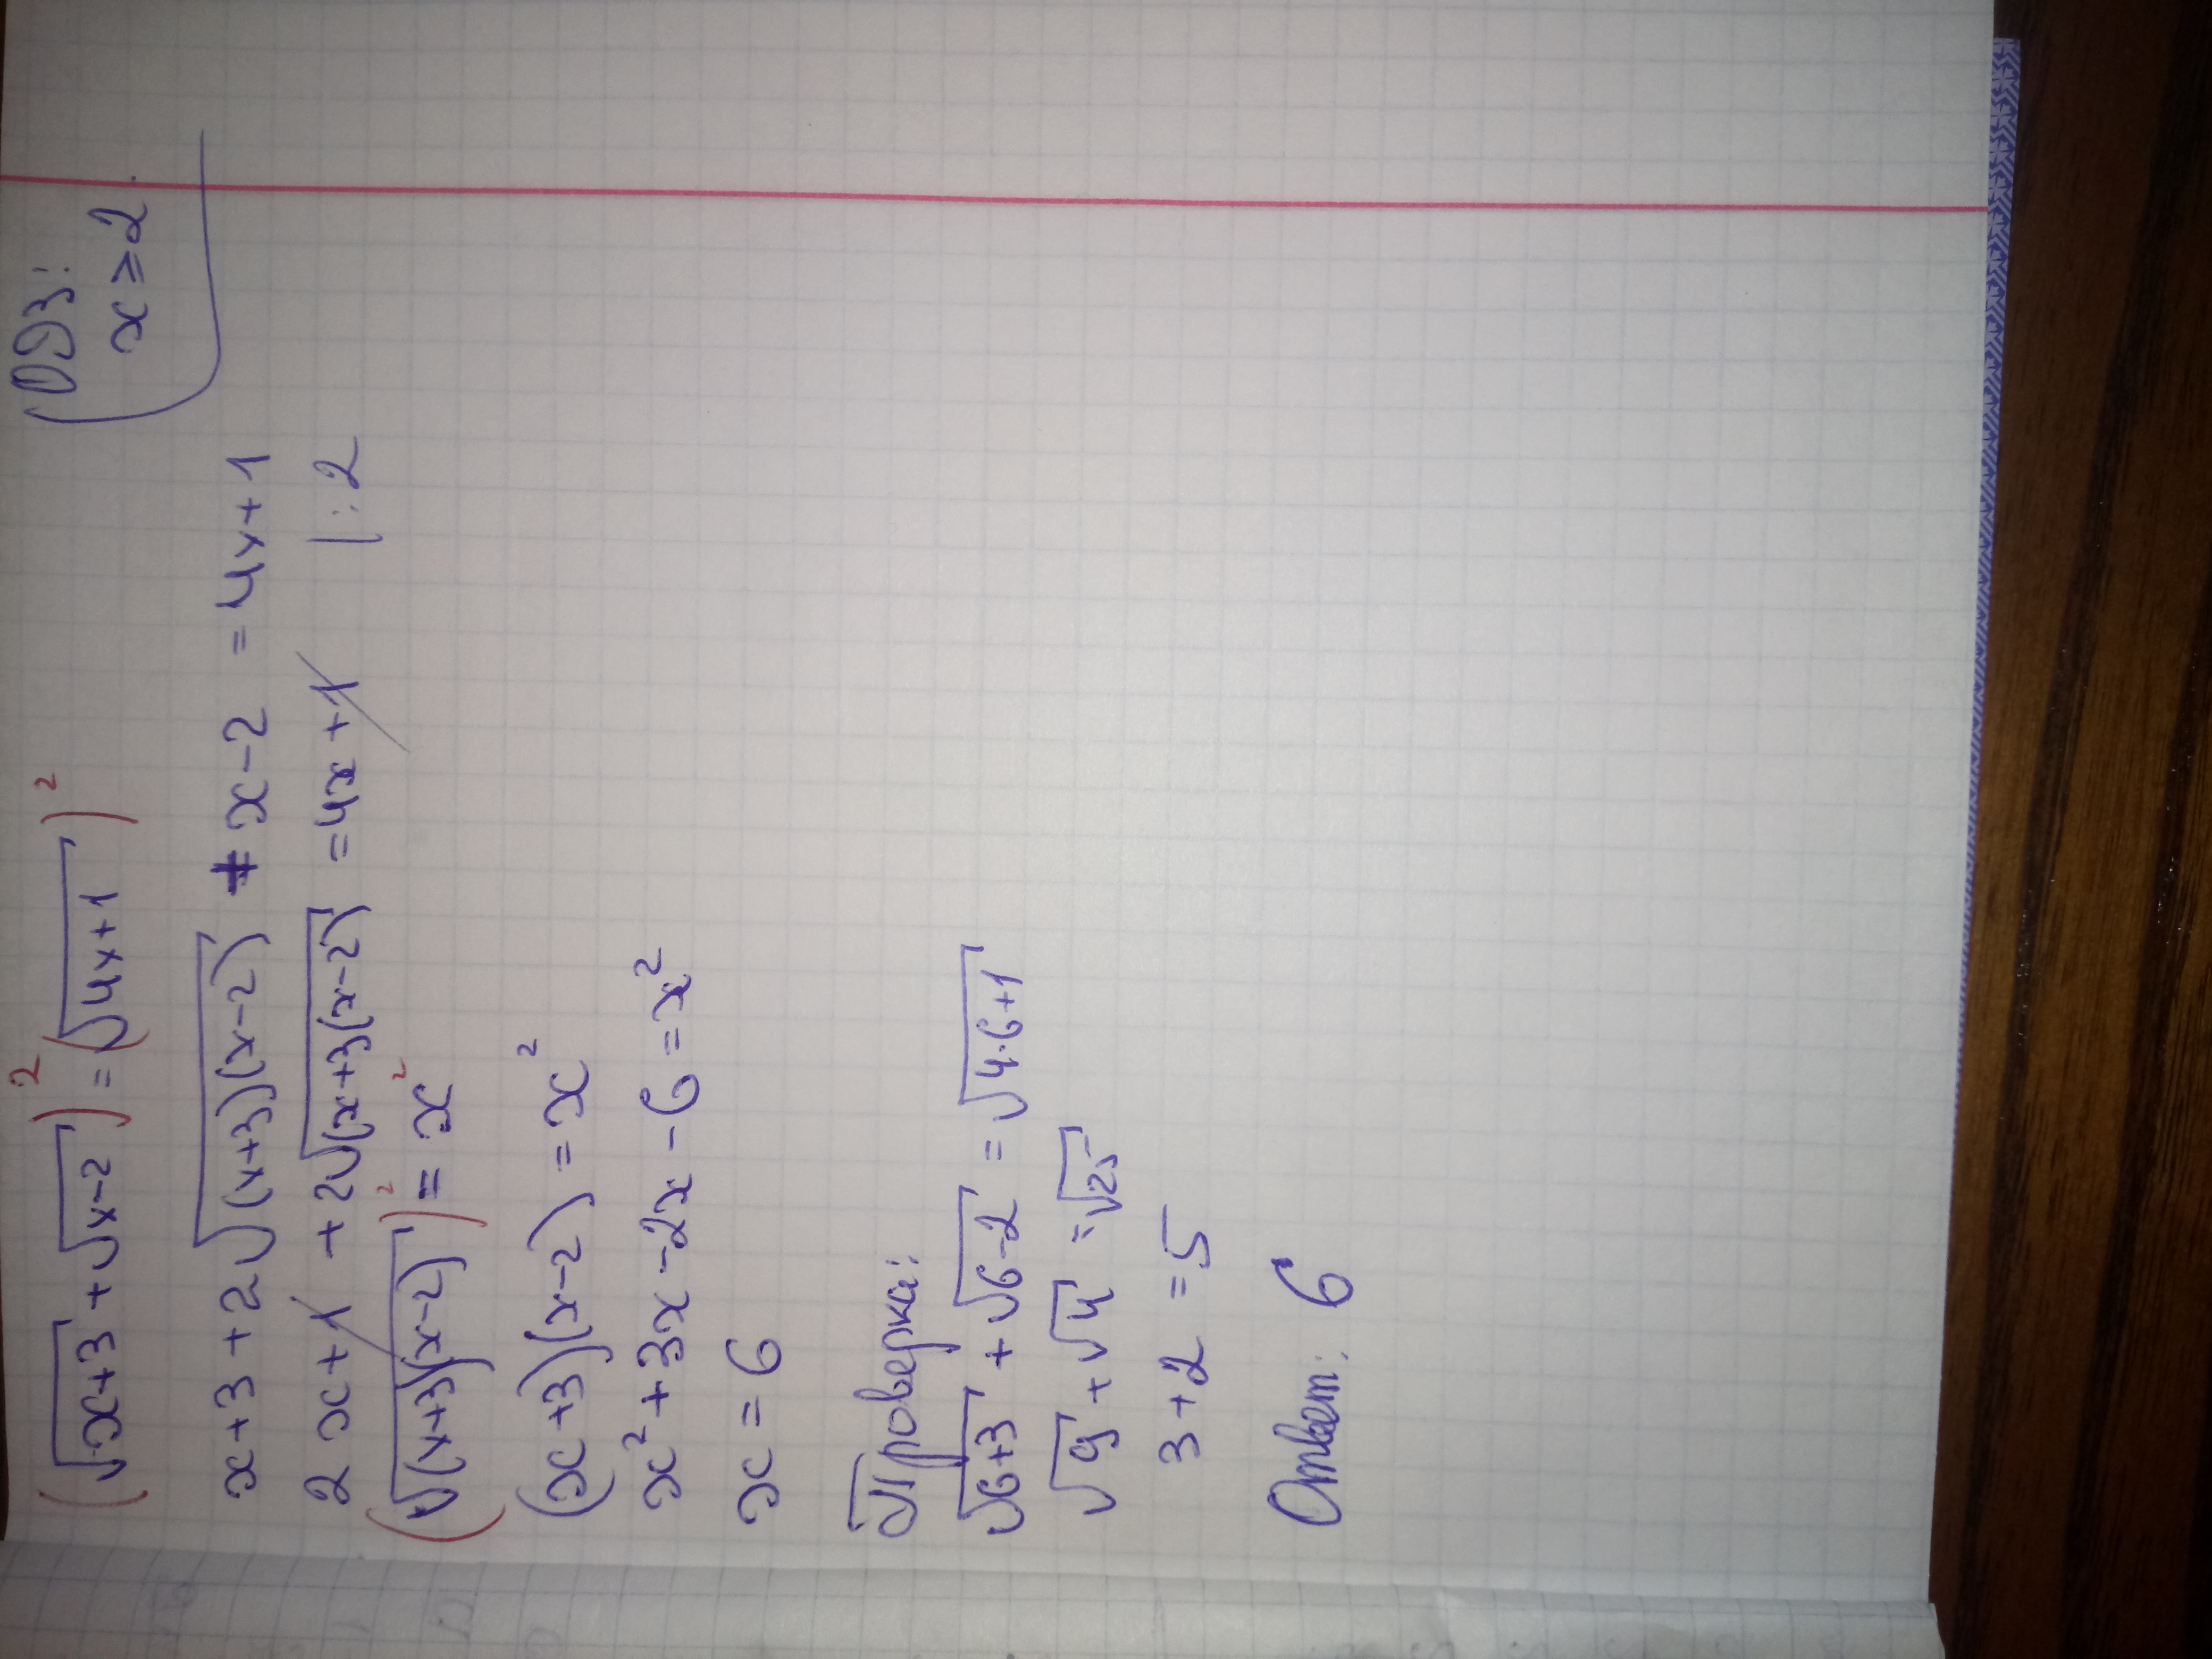 (√x+3 + √x-2)² = (√4x+1)²
ОДЗ:
x ≥ 2
x+3+2√(x+3)(x-2) + x-2 = 4x+1
2x+1 + 2√(x+3)(x-2) = 4x+1 |:2
(√(x+3)(x-2))² = x²
(x+3)(x-2) = x²
x²+3x-2x-6=x²
x=6
Проверка:
√6+3 + √6-2 = √4·6+1
√9 + √4 = √25
3+2=5
Ответ: 6